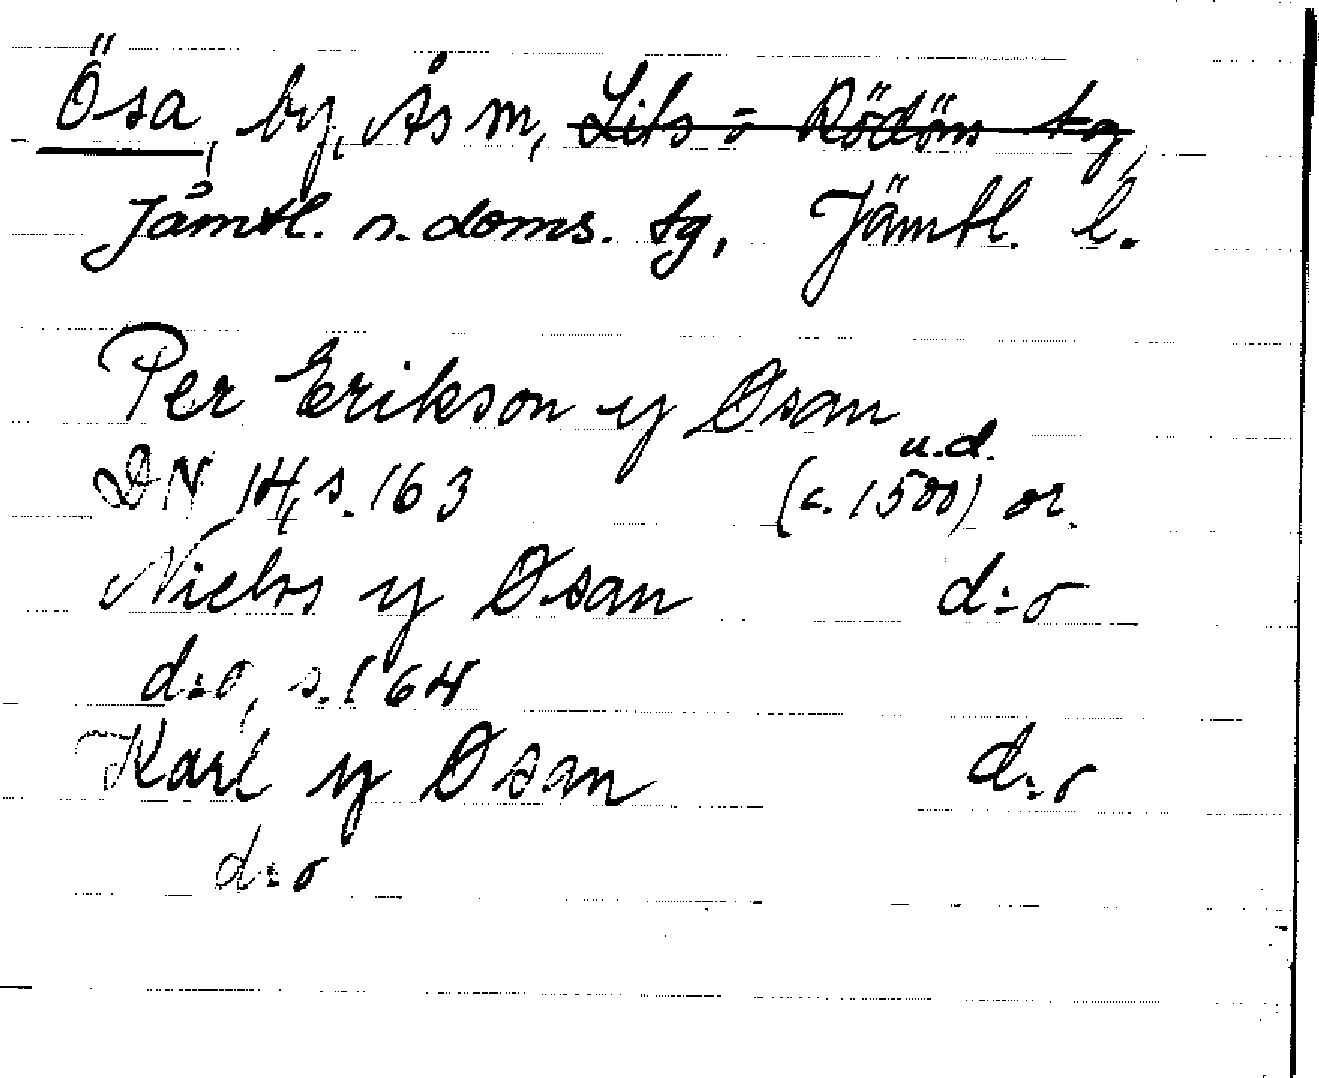 Ösa, by, Ås sn, Lits o Rödöns tg,
Jämtl. n. doms. tg, Jämtl. l.
Per Erikson y Øsan
u.d.
DN 14, s. 163 (c. 1500) or.
Niels y Øsan d:o
d:o, s. 164
Karl y Øsan d:o
d:o